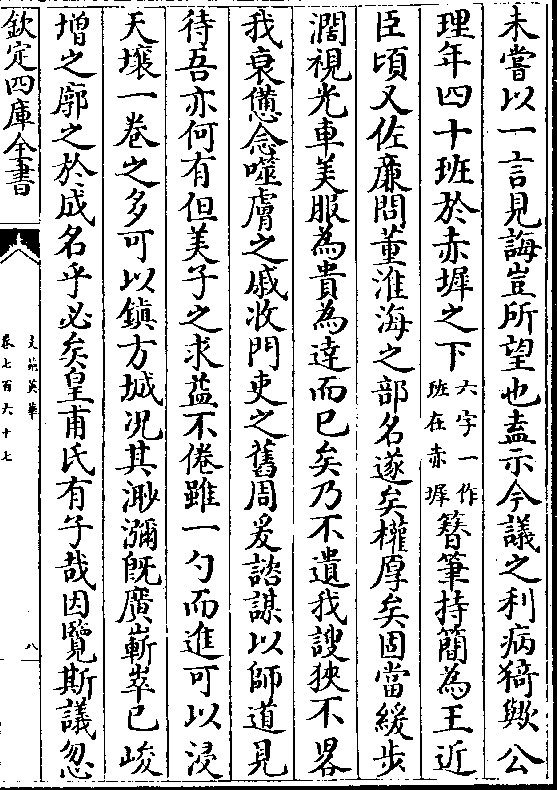 未嘗以一言見誨豈所望也盍示今議之利病猗歟公
理年四十班於赤墀之下六字一作班在赤墀簪筆持簡為王近
臣頃又佐廉問董淮海之部名遂矣權厚矣固當緩步
濶視光車美服為貴為達而已矣乃不遺我謏狹不畧
我衰憊念噬膚之戚收門吏之舊周爰諮謀以師道見
待吾亦何有但美子之求益不倦雖一勺而進可以浸
天壤一卷之多可以鎮方城况其渺瀰既廣嶄崒已峻
增之廓之於成名乎必矣皇甫氏有子哉因覽斯議忽
欽定四庫全書
文苑英華
卷七百六十七
八